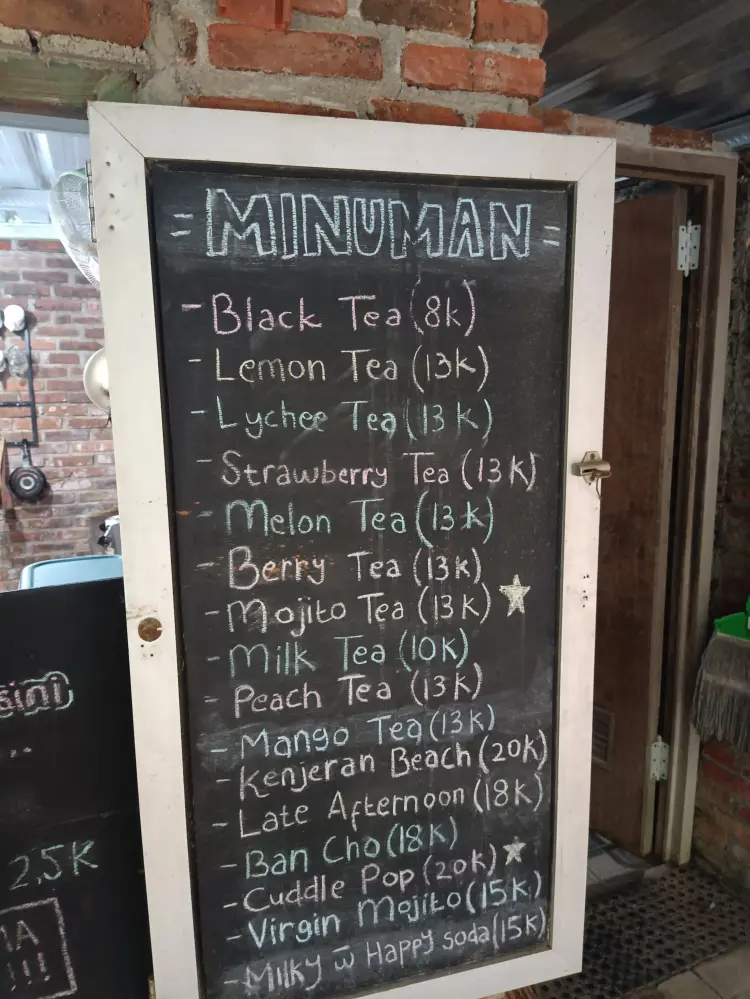 = MINUMAN =
- Black Tea (8k)
- Lemon Tea (13k)
- Lychee Tea (13K)
- Strawberry Tea (13K)
- Melon Tea (13k)
- Berry Tea (13K)
- Mojito Tea (13K)
- Milk Tea (10K)
- Peach Tea (13K)
- Mango Tea (13K)
- Kenjeran Beach (20K)
- Late Afternoon (18K)
- Ban Cho (18K)
- Cuddle Pop (20K)
- Virgin Mojito (15K)
- Milky w̅ Happy soda (15K)
sini
..
2,5K
!!!